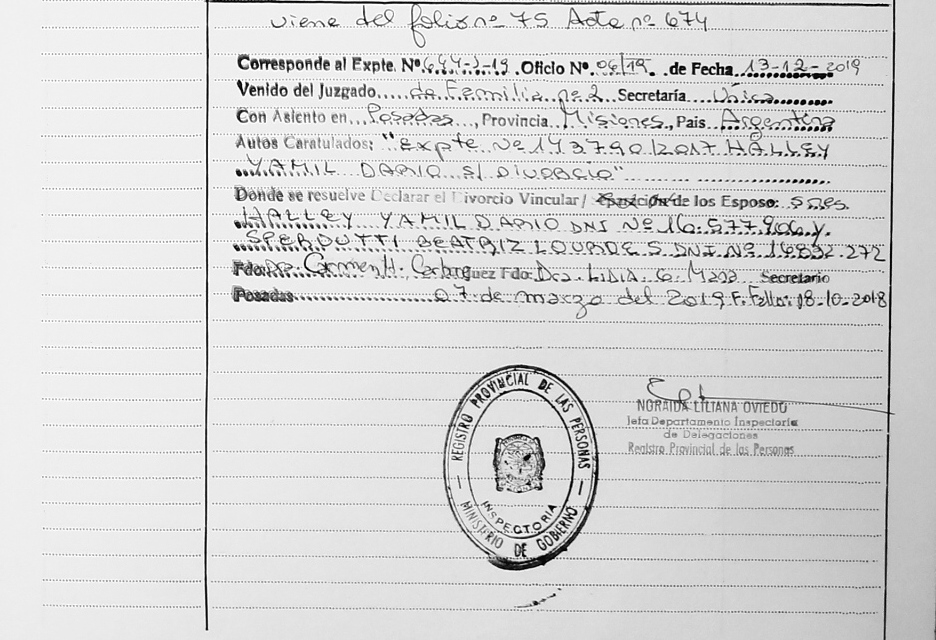 viene del folio nº 75 Acta nº 674
Corresponde al Expte. Nº 644-J-19 Oficio Nº 06/19 de Fecha 13-12-2019
Venido del Juzgado de Familia nº 2 Secretaría Única
Con Asiento en Posadas, Provincia Misiones, Pais Argentina
Autos Caratulados: "Expte Nº 143790/2017 HALLEY
YAMIL DARIO S/ DIVORCIO"
Donde se resuelve Declarar el Divorcio Vincular/ de los Esposo: Sres.
HALLEY YAMIL DARIO DNI Nº 16.577.906 y
SPERDUTTI BEATRIZ LOURDES DNI Nº 16832.272
Fdo: Dra Carmen H. Fdo: Dra LIDIA Secretario
Posadas 07 de marzo del 2019 F. Fallo: 18-10-2018
REGISTRO PROVINCIAL DE LAS PERSONAS
INSPECTORIA
MINISTERIO DE GOBIERNO
NORAIDA LILIANA OVIEDO
Jefa Departamento Inspectoría
de Delegaciones
Registro Provincial de las Personas